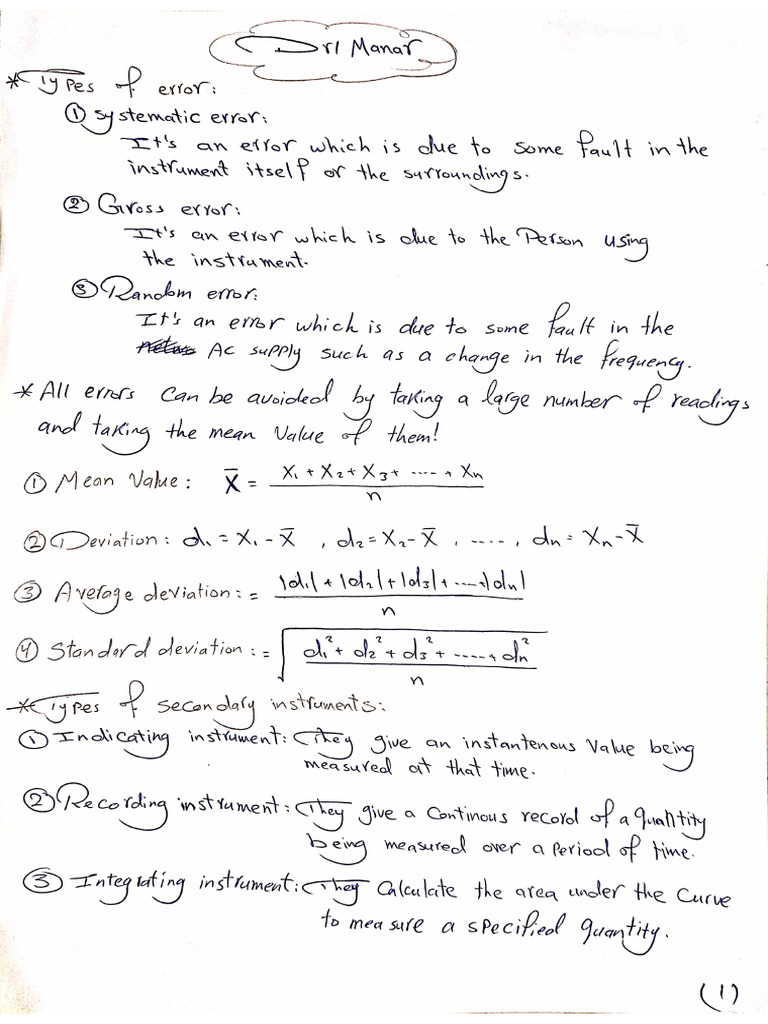 Dr/ Manar
* Types of error:
① Systematic error:
It's an error which is due to some fault in the
instrument itself or the surroundings.
② Gross error:
It's an error which is due to the Person using
the instrument.
③ Random error:
It's an error which is due to some fault in the
AC supply such as a change in the frequency.
* All errors can be avoided by taking a large number of readings
and taking the mean value of them!
① Mean Value: X̄ = (X₁ + X₂ + X₃ + ---- + Xₙ) / n
② Deviation: d₁ = X₁ - X̄ , d₂ = X₂ - X̄ , ----, dₙ = Xₙ - X̄
③ Average deviation: = (|d₁| + |d₂| + |d₃| + ----+|dₙ|) / n
④ Standard deviation: = √((d₁² + d₂² + d₃² + ----+ dₙ²) / n)
* Types of secondary instruments:
① Indicating instrument: They give an instantenous value being
measured at that time.
② Recording instrument: They give a Continous record of a quantity
being measured over a Period of time.
③ Integrating instrument: They Calculate the area under the Curve
to measure a specified quantity.
(1)